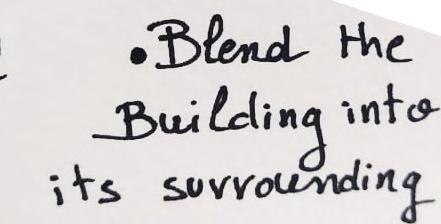 •Blend the
Building into
its surrounding